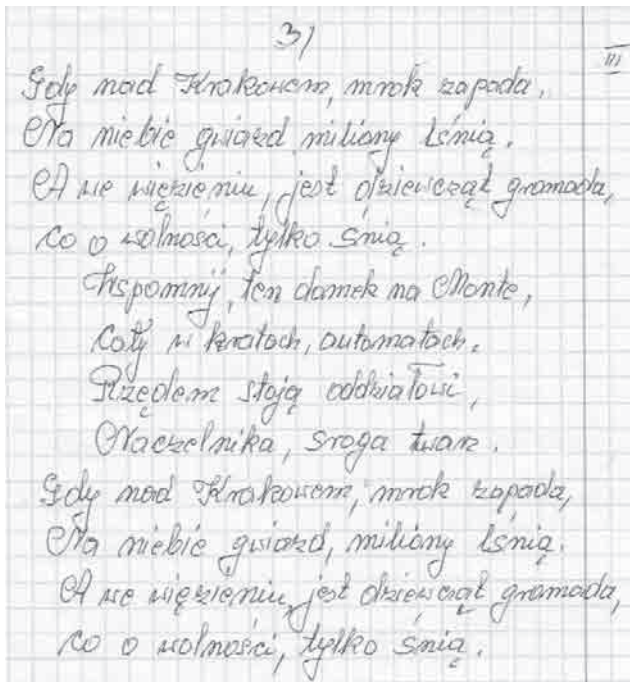 3/
III
Gdy nad Krakowem, mrok zapada,
Na niebie gwiazd miliony lśnią.
A we więzieniu, jest dziewcząt gromada,
co o wolności, tylko śnią.
Wspomnij, ten domek na Monte,
Cały w kratach, automatach.
Rzędem stoją oddziałowi,
Naczelnika, sroga twarz.
Gdy nad Krakowem, mrok zapada,
Na niebie gwiazd, miliony lśnią.
A we więzieniu, jest dziewcząt gromada,
co o wolności, tylko śnią.